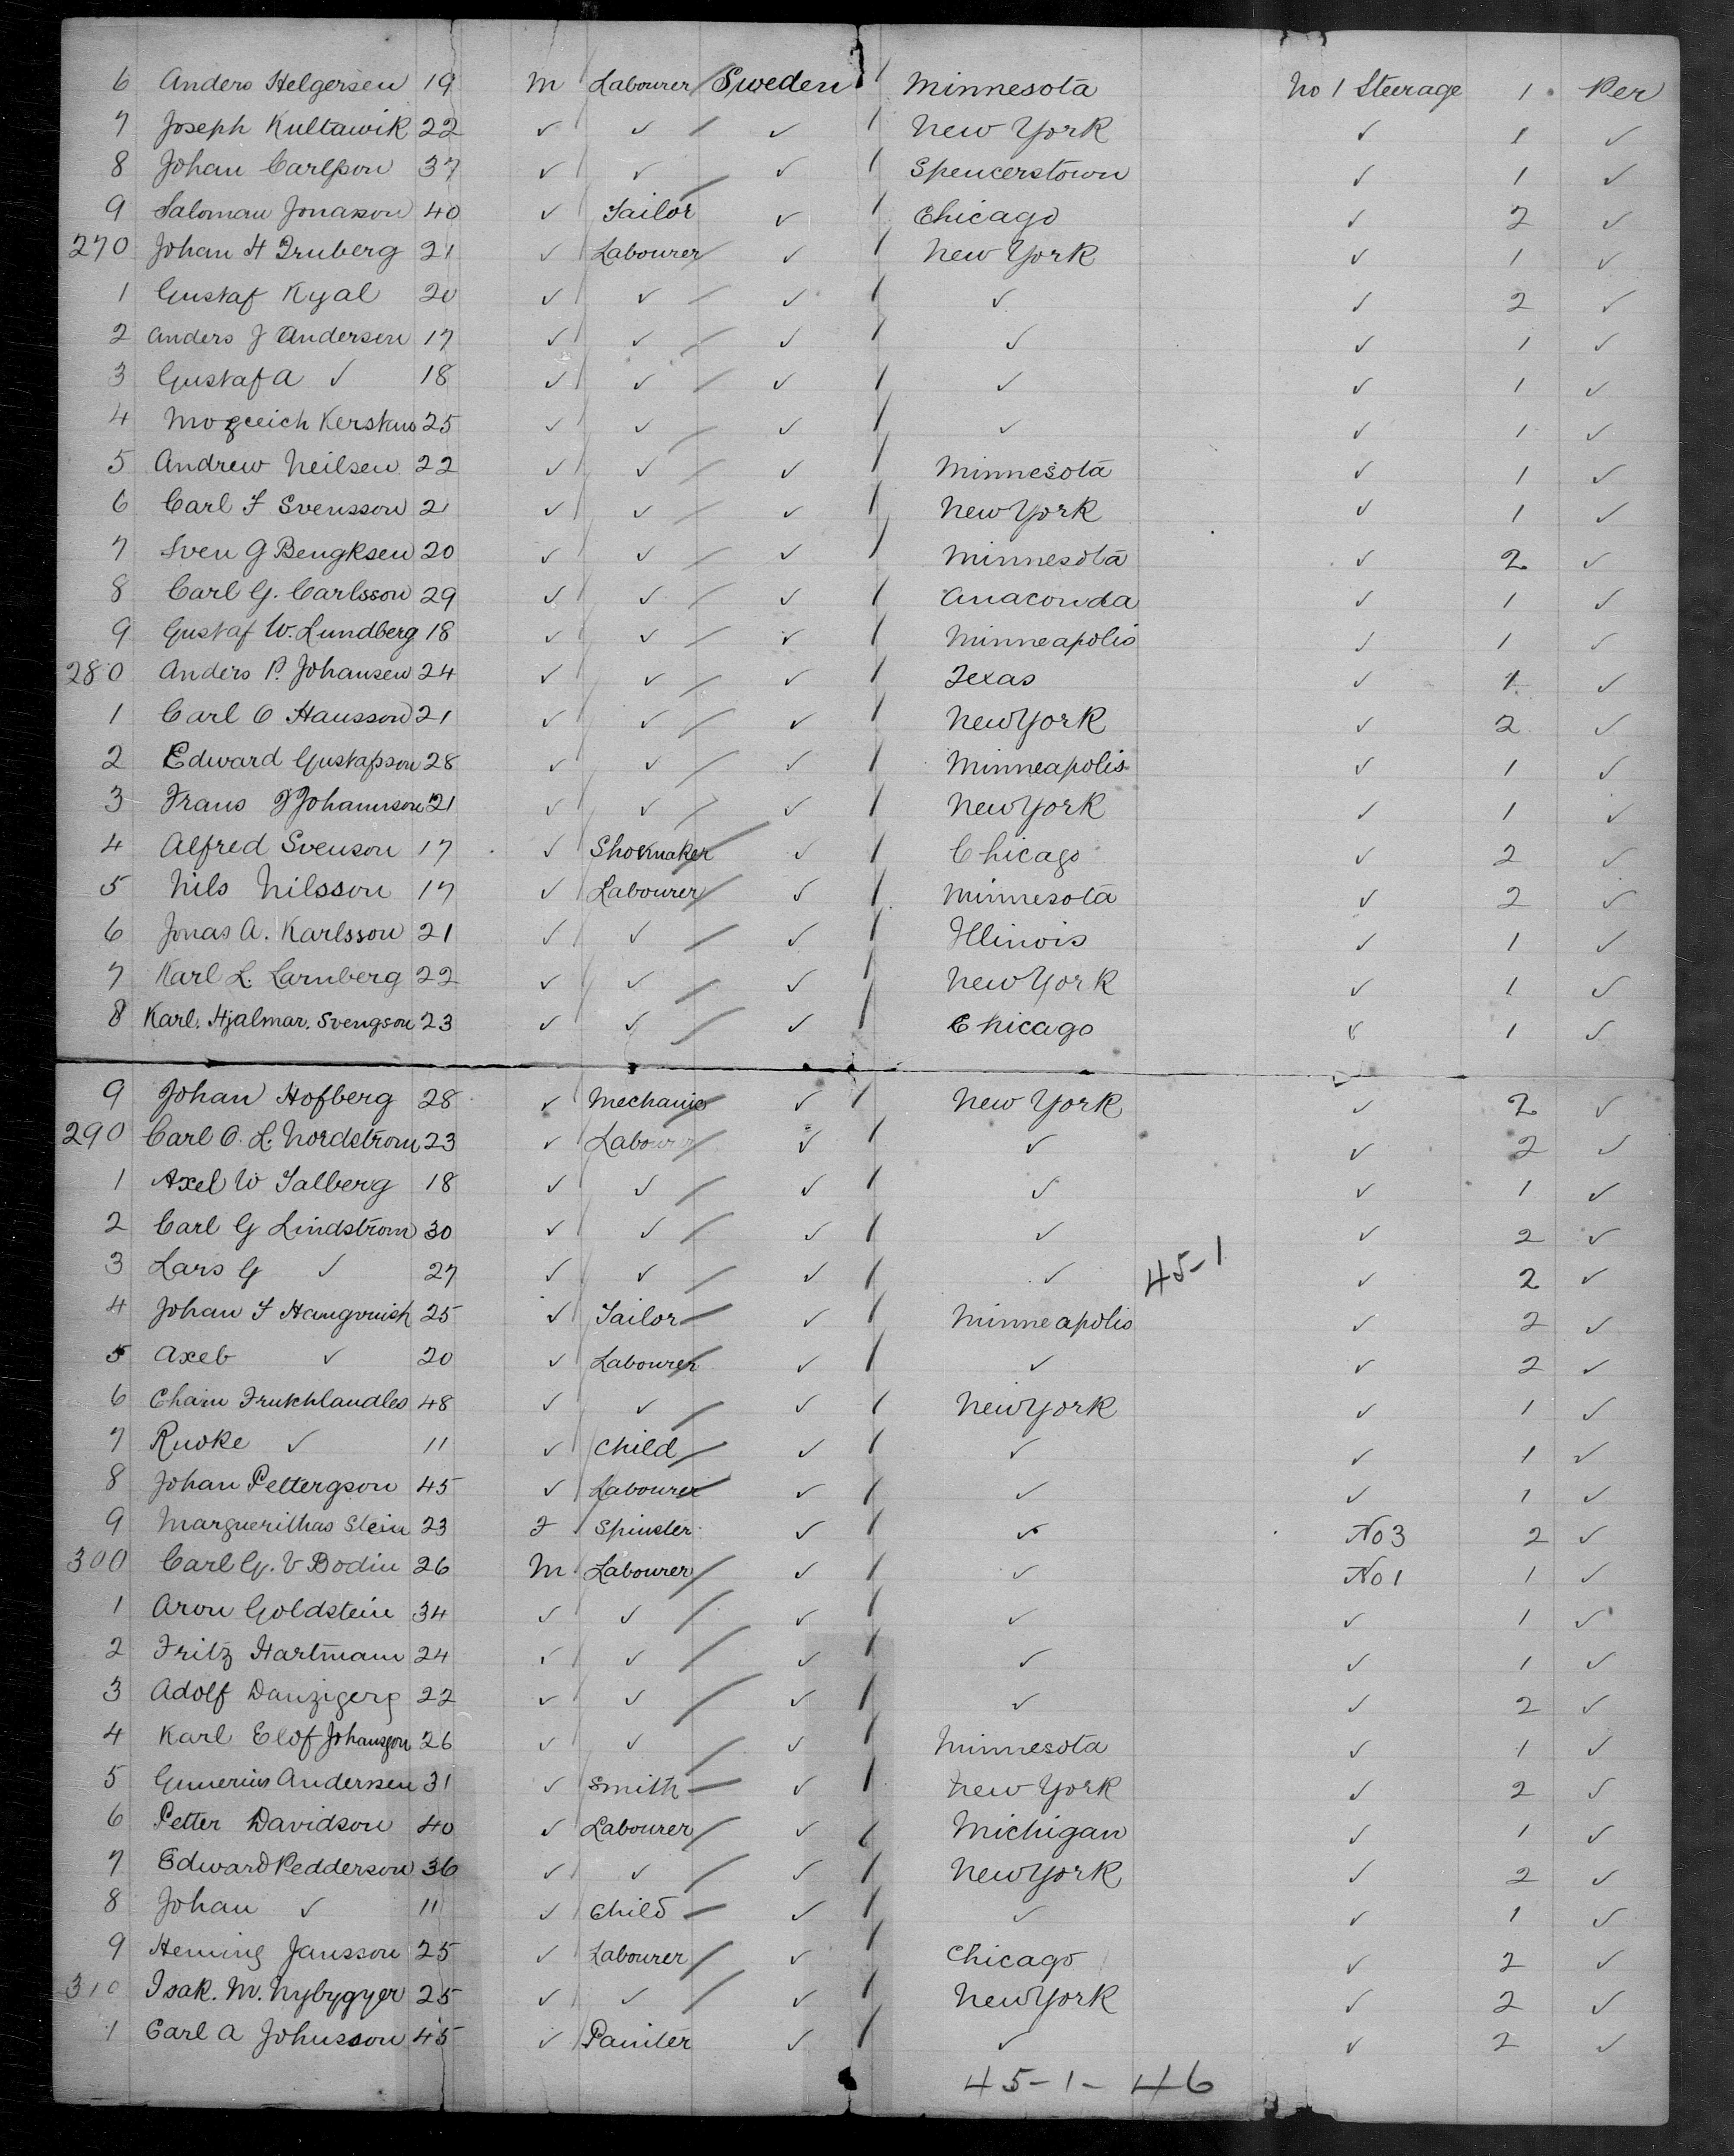 6 Anders Helgersen 19 m Labourer Sweden Minnesota No 1 Steerage 1 Per
7 Joseph Kultawik 22 ✓ ✓ ✓ New York ✓ 1 ✓
8 Johan Carlsson 37 ✓ ✓ ✓ Spencerstown ✓ 1 ✓
9 Saloman Jonason 40 ✓ Tailor ✓ Chicago ✓ 2 ✓
270 Johan H Truberg 21 ✓ Labourer ✓ New York ✓ 1 ✓
1 Gustaf Kyal 20 ✓ ✓ ✓ ✓ ✓ 2 ✓
2 Anders J Anderson 17 ✓ ✓ ✓ ✓ ✓ 1 ✓
3 Gustaf A ✓ 18 ✓ ✓ ✓ ✓ ✓ 1 ✓
4 25 ✓ ✓ ✓ ✓ ✓ 1 ✓
5 Andrew Neilsen 22 ✓ ✓ ✓ Minnesota ✓ 1 ✓
6 Carl F Svensson 21 ✓ ✓ ✓ New York ✓ 1 ✓
7 Sven G Bengksen 20 ✓ ✓ ✓ Minnesota ✓ 2 ✓
8 Carl G. Carlsson 29 ✓ ✓ ✓ Anaconda ✓ 1 ✓
9 Gustaf W. Lundberg 18 ✓ ✓ ✓ Minneapolis ✓ 1 ✓
280 Anders P. Johansen 24 ✓ ✓ ✓ Texas ✓ 1 ✓
1 Carl O Hansson 21 ✓ ✓ ✓ New York ✓ 2 ✓
2 Edward Gustafsson 28 ✓ ✓ ✓ Minneapolis ✓ 1 ✓
3 Frans F Johannson 21 ✓ ✓ ✓ New York ✓ 1 ✓
4 Alfred Svenson 17 ✓ Shoemaker ✓ Chicago ✓ 2 ✓
5 Nils Nilsson 17 ✓ Labourer ✓ Minnesota ✓ 2 ✓
6 Jonas A. Karlsson 21 ✓ ✓ ✓ Illinois ✓ 1 ✓
7 Karl L. Larnberg 22 ✓ ✓ ✓ New York ✓ 1 ✓
8 Karl. Hjalmar. Svengson 23 ✓ ✓ ✓ Chicago ✓ 1 ✓
9 Johan Hofberg 28 ✓ Mechanic ✓ New York ✓ 2 ✓
290 Carl O. L. Nordstrom 23 ✓ Labourer ✓ ✓ ✓ 2 ✓
1 Axel W Salberg 18 ✓ ✓ ✓ ✓ ✓ 1 ✓
2 Carl G Lindstrom 30 ✓ ✓ ✓ ✓ ✓ 2 ✓
3 Lars G ✓ 27 ✓ ✓ ✓ ✓ 45-1 ✓ 2 ✓
4 Johan F 25 ✓ Tailor ✓ Minneapolis ✓ 2 ✓
5 Axel ✓ 20 ✓ Labourer ✓ ✓ ✓ 2 ✓
6 Chaim Frukhlandles 48 ✓ ✓ ✓ New York ✓ 1 ✓
7 Rwoke ✓ 11 ✓ Child ✓ ✓ ✓ 1 ✓
8 Johan Pettergson 45 ✓ Labourer ✓ ✓ ✓ 1 ✓
9 Marguerithas Stein 23 F Spinster ✓ ✓ No 3 2 ✓
300 Carl G. V Bodin 26 M Labourer ✓ ✓ No 1 1 ✓
1 Aron Goldstein 34 ✓ ✓ ✓ ✓ ✓ 1 ✓
2 Fritz Hartmann 24 ✓ ✓ ✓ ✓ ✓ 1 ✓
3 Adolf Danzigerg 22 ✓ ✓ ✓ ✓ ✓ 2 ✓
4 Karl Elof Johansson 26 ✓ ✓ ✓ Minnesota ✓ 1 ✓
5 Gunerius Andersen 31 ✓ Smith ✓ New York ✓ 2 ✓
6 Petter Davidson 40 ✓ Labourer ✓ Michigan ✓ 1 ✓
7 Edward Pedderson 36 ✓ ✓ ✓ New York ✓ 2 ✓
8 Johan ✓ 11 ✓ Child ✓ ✓ ✓ 1 ✓
9 Hening Jansson 25 ✓ Labourer ✓ Chicago ✓ 2 ✓
310 Isak. M. Nybygyer 25 ✓ ✓ ✓ New York ✓ 2 ✓
1 Carl A Johnsson 45 ✓ Painter ✓ ✓ ✓ 2 ✓
45-1-46